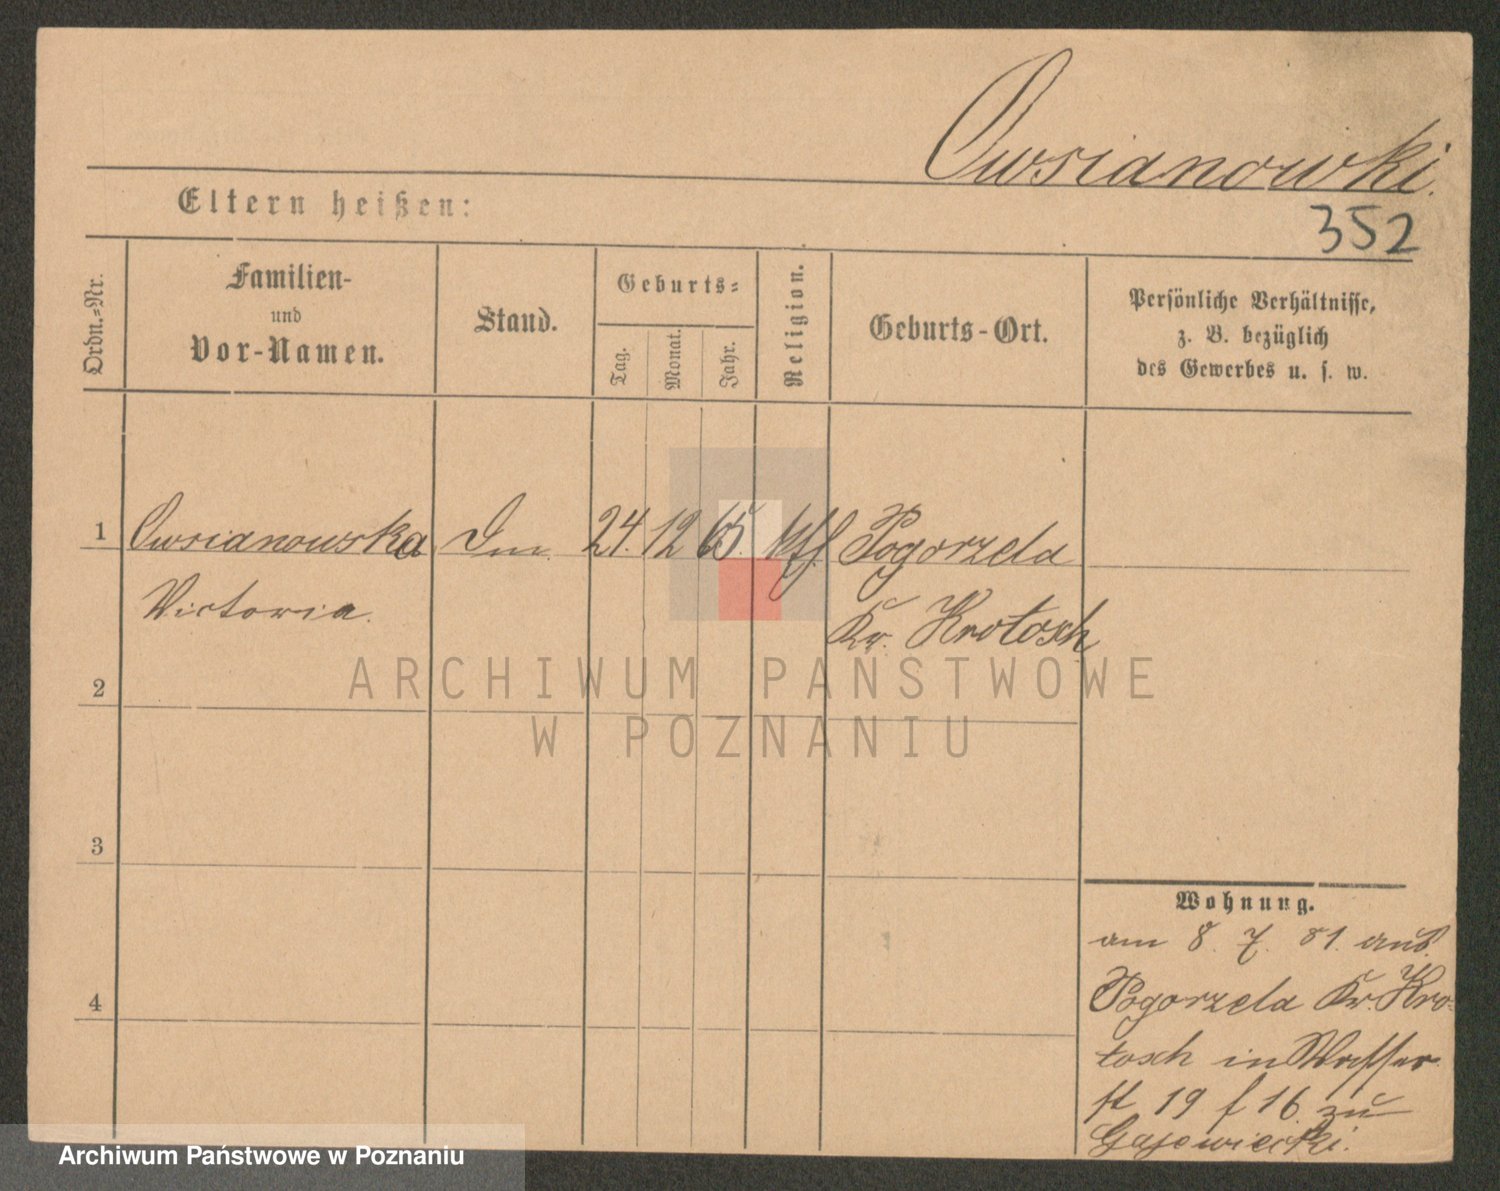 Owsianowski.
Eltern heißen:
352
Ordn.-Nr.
Familien-
und
Vor-Namen.
Stand.
Geburts-
Tag.
Monat.
Jahr.
Religion.
Geburts-Ort.
Persönliche Verhältnisse,
z. B. bezüglich
des Gewerbes u. s. w.
1 Owsianowska 24. 12 65. Pogorzela
Victoria. Kr. Krotosch
ARCHIWUM PAŃSTWOWE
2
W POZNANIU
3
Wohnung.
am 8. 7. 81. aus
4
Pogorzela Kr. Kro-
tosch in Wasser
st 19 f 16. zu
Gajewiecki.
Archiwum Państwowe w Poznaniu